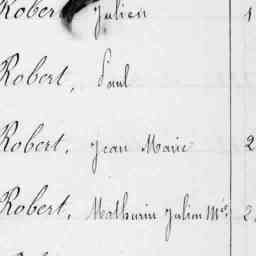 Robert Julien 1
Robert, Paul
Robert, Jean Marie 2
Robert, Mathurin Julien Mie 2